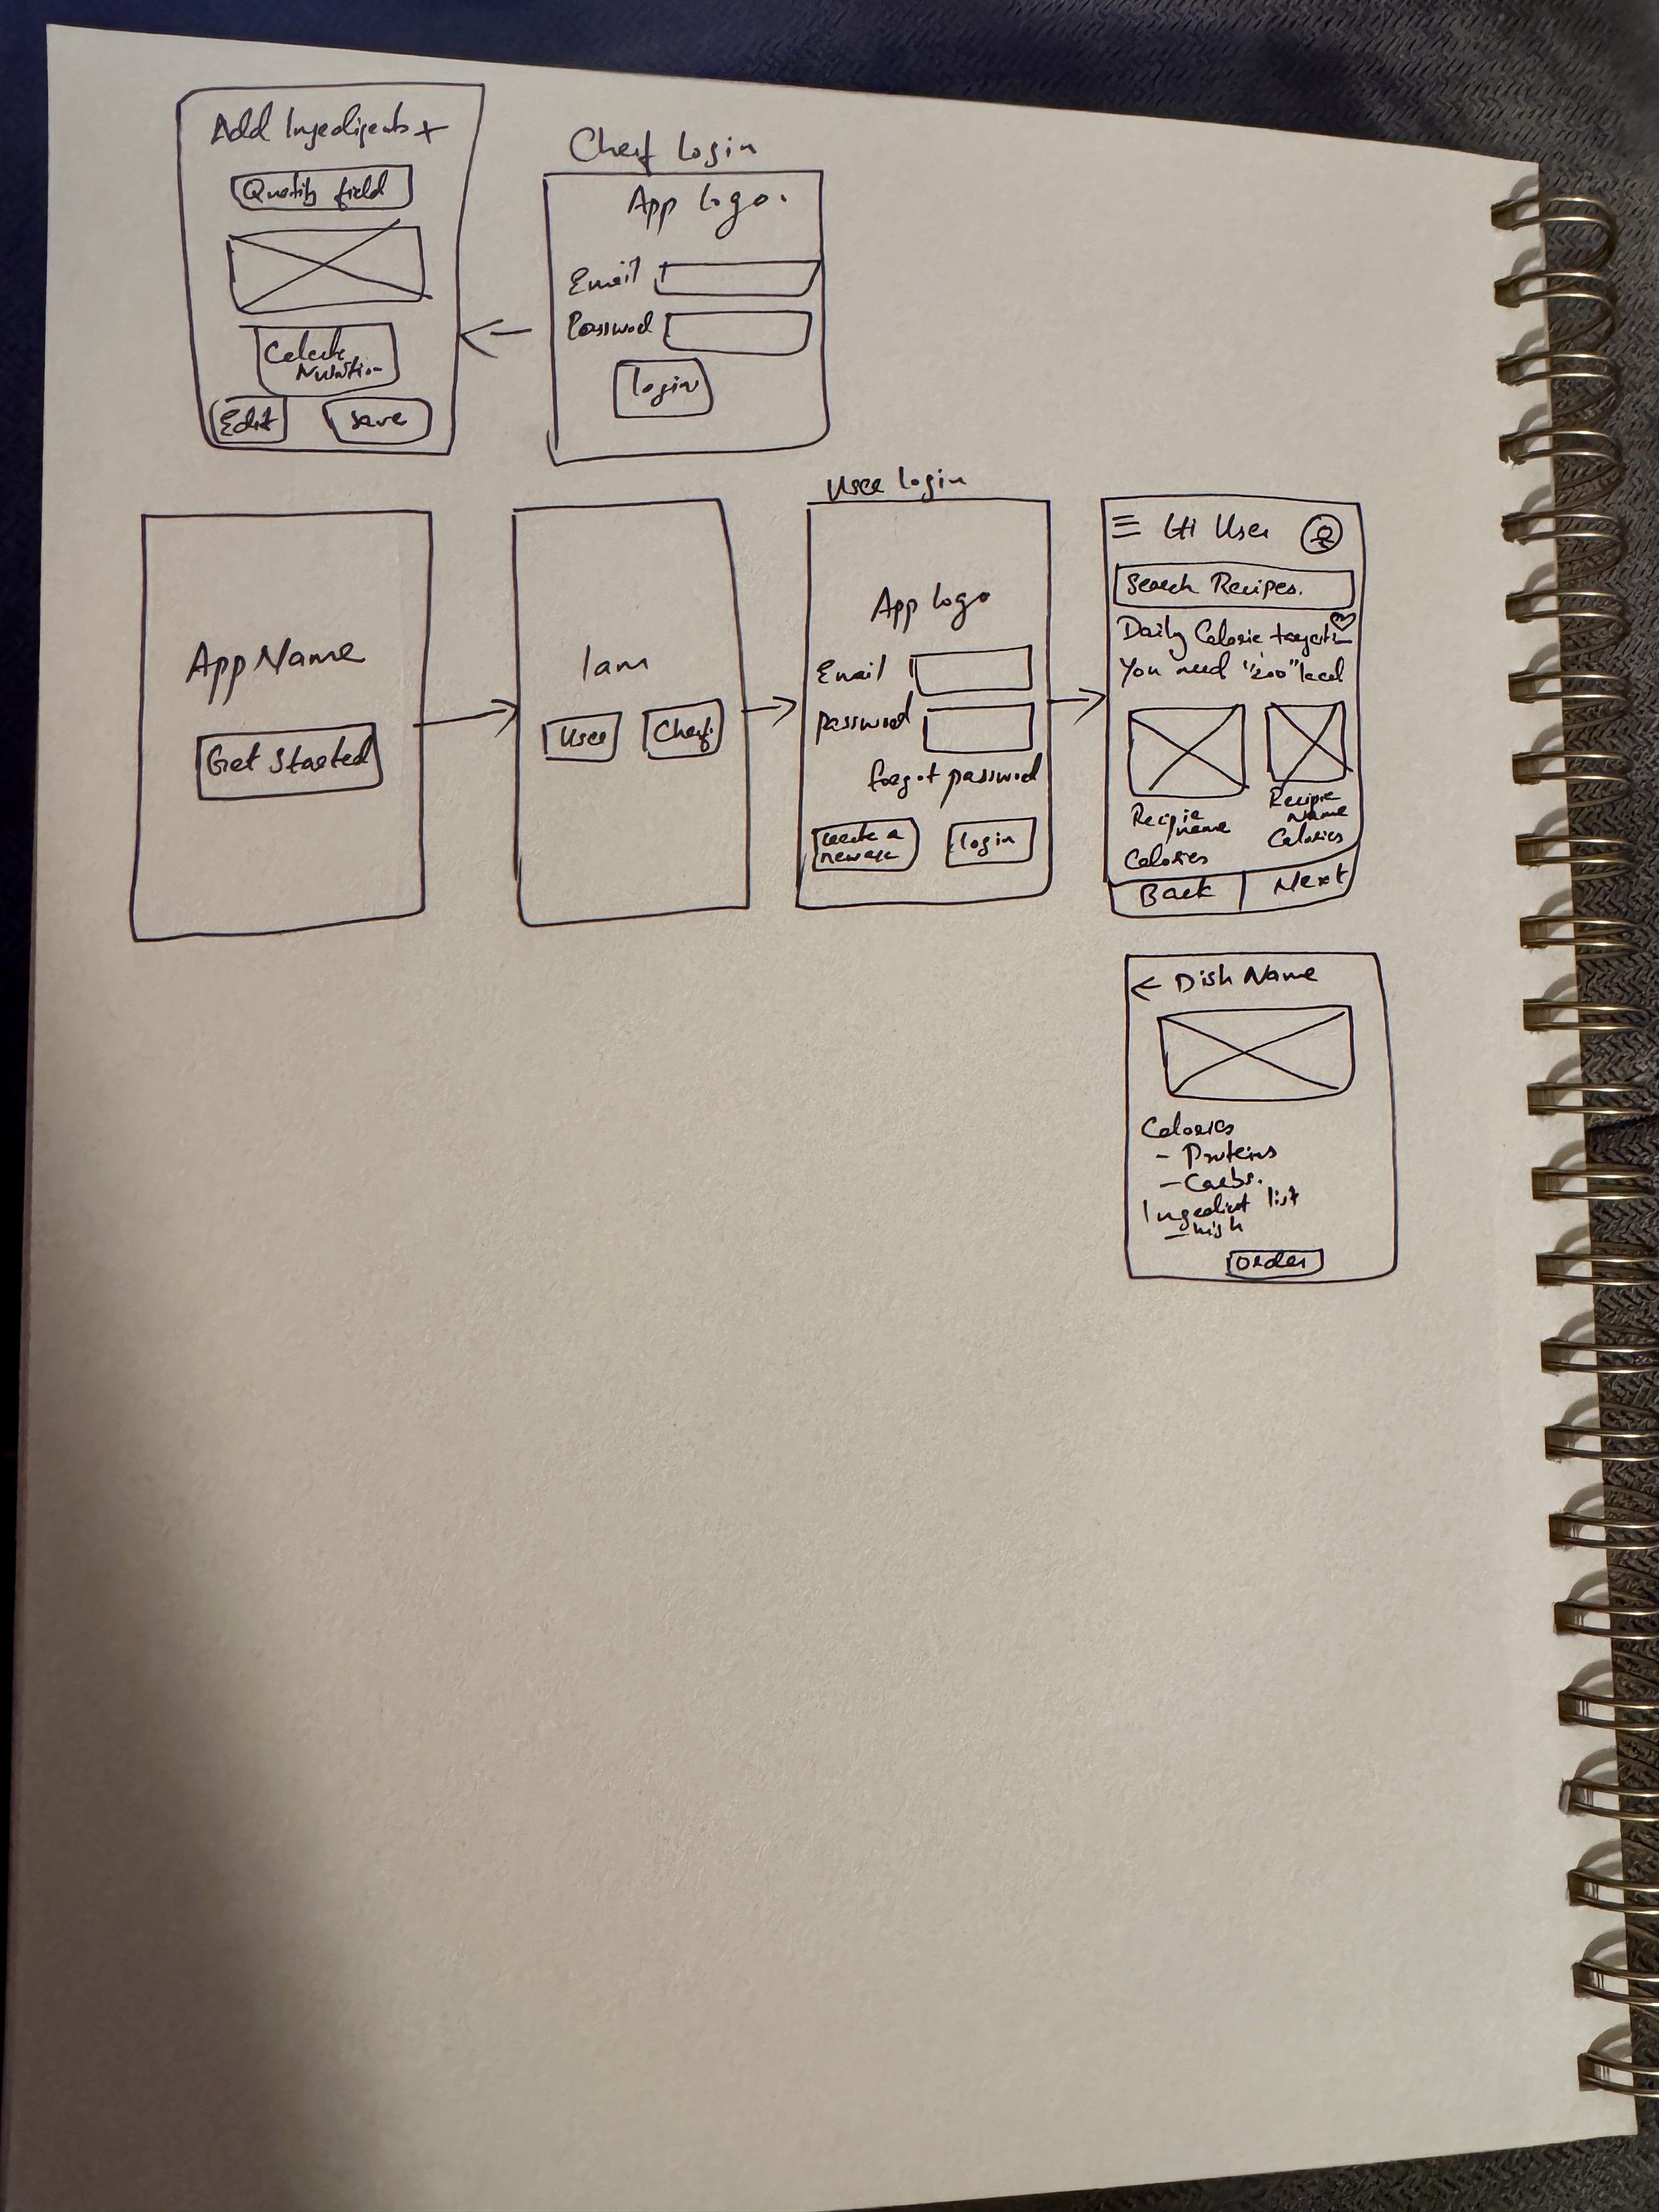 Add Ingredients +
Quantity field
Edit
Save
Chef Login
App Logo.
Email
Password
login
App Name
Get Started
I am
User
Chef
User login
App logo
Email
password
forgot password
create a
new acc
login
Hi User
Search Recipes.
Daily Calorie target:-
You need "200" kcal
Recipie
name
Calories
Recipie
Name
Calories
Back
Next
← Dish Name
Calories
- Proteins
- Carbs.
Ingredient list
Order